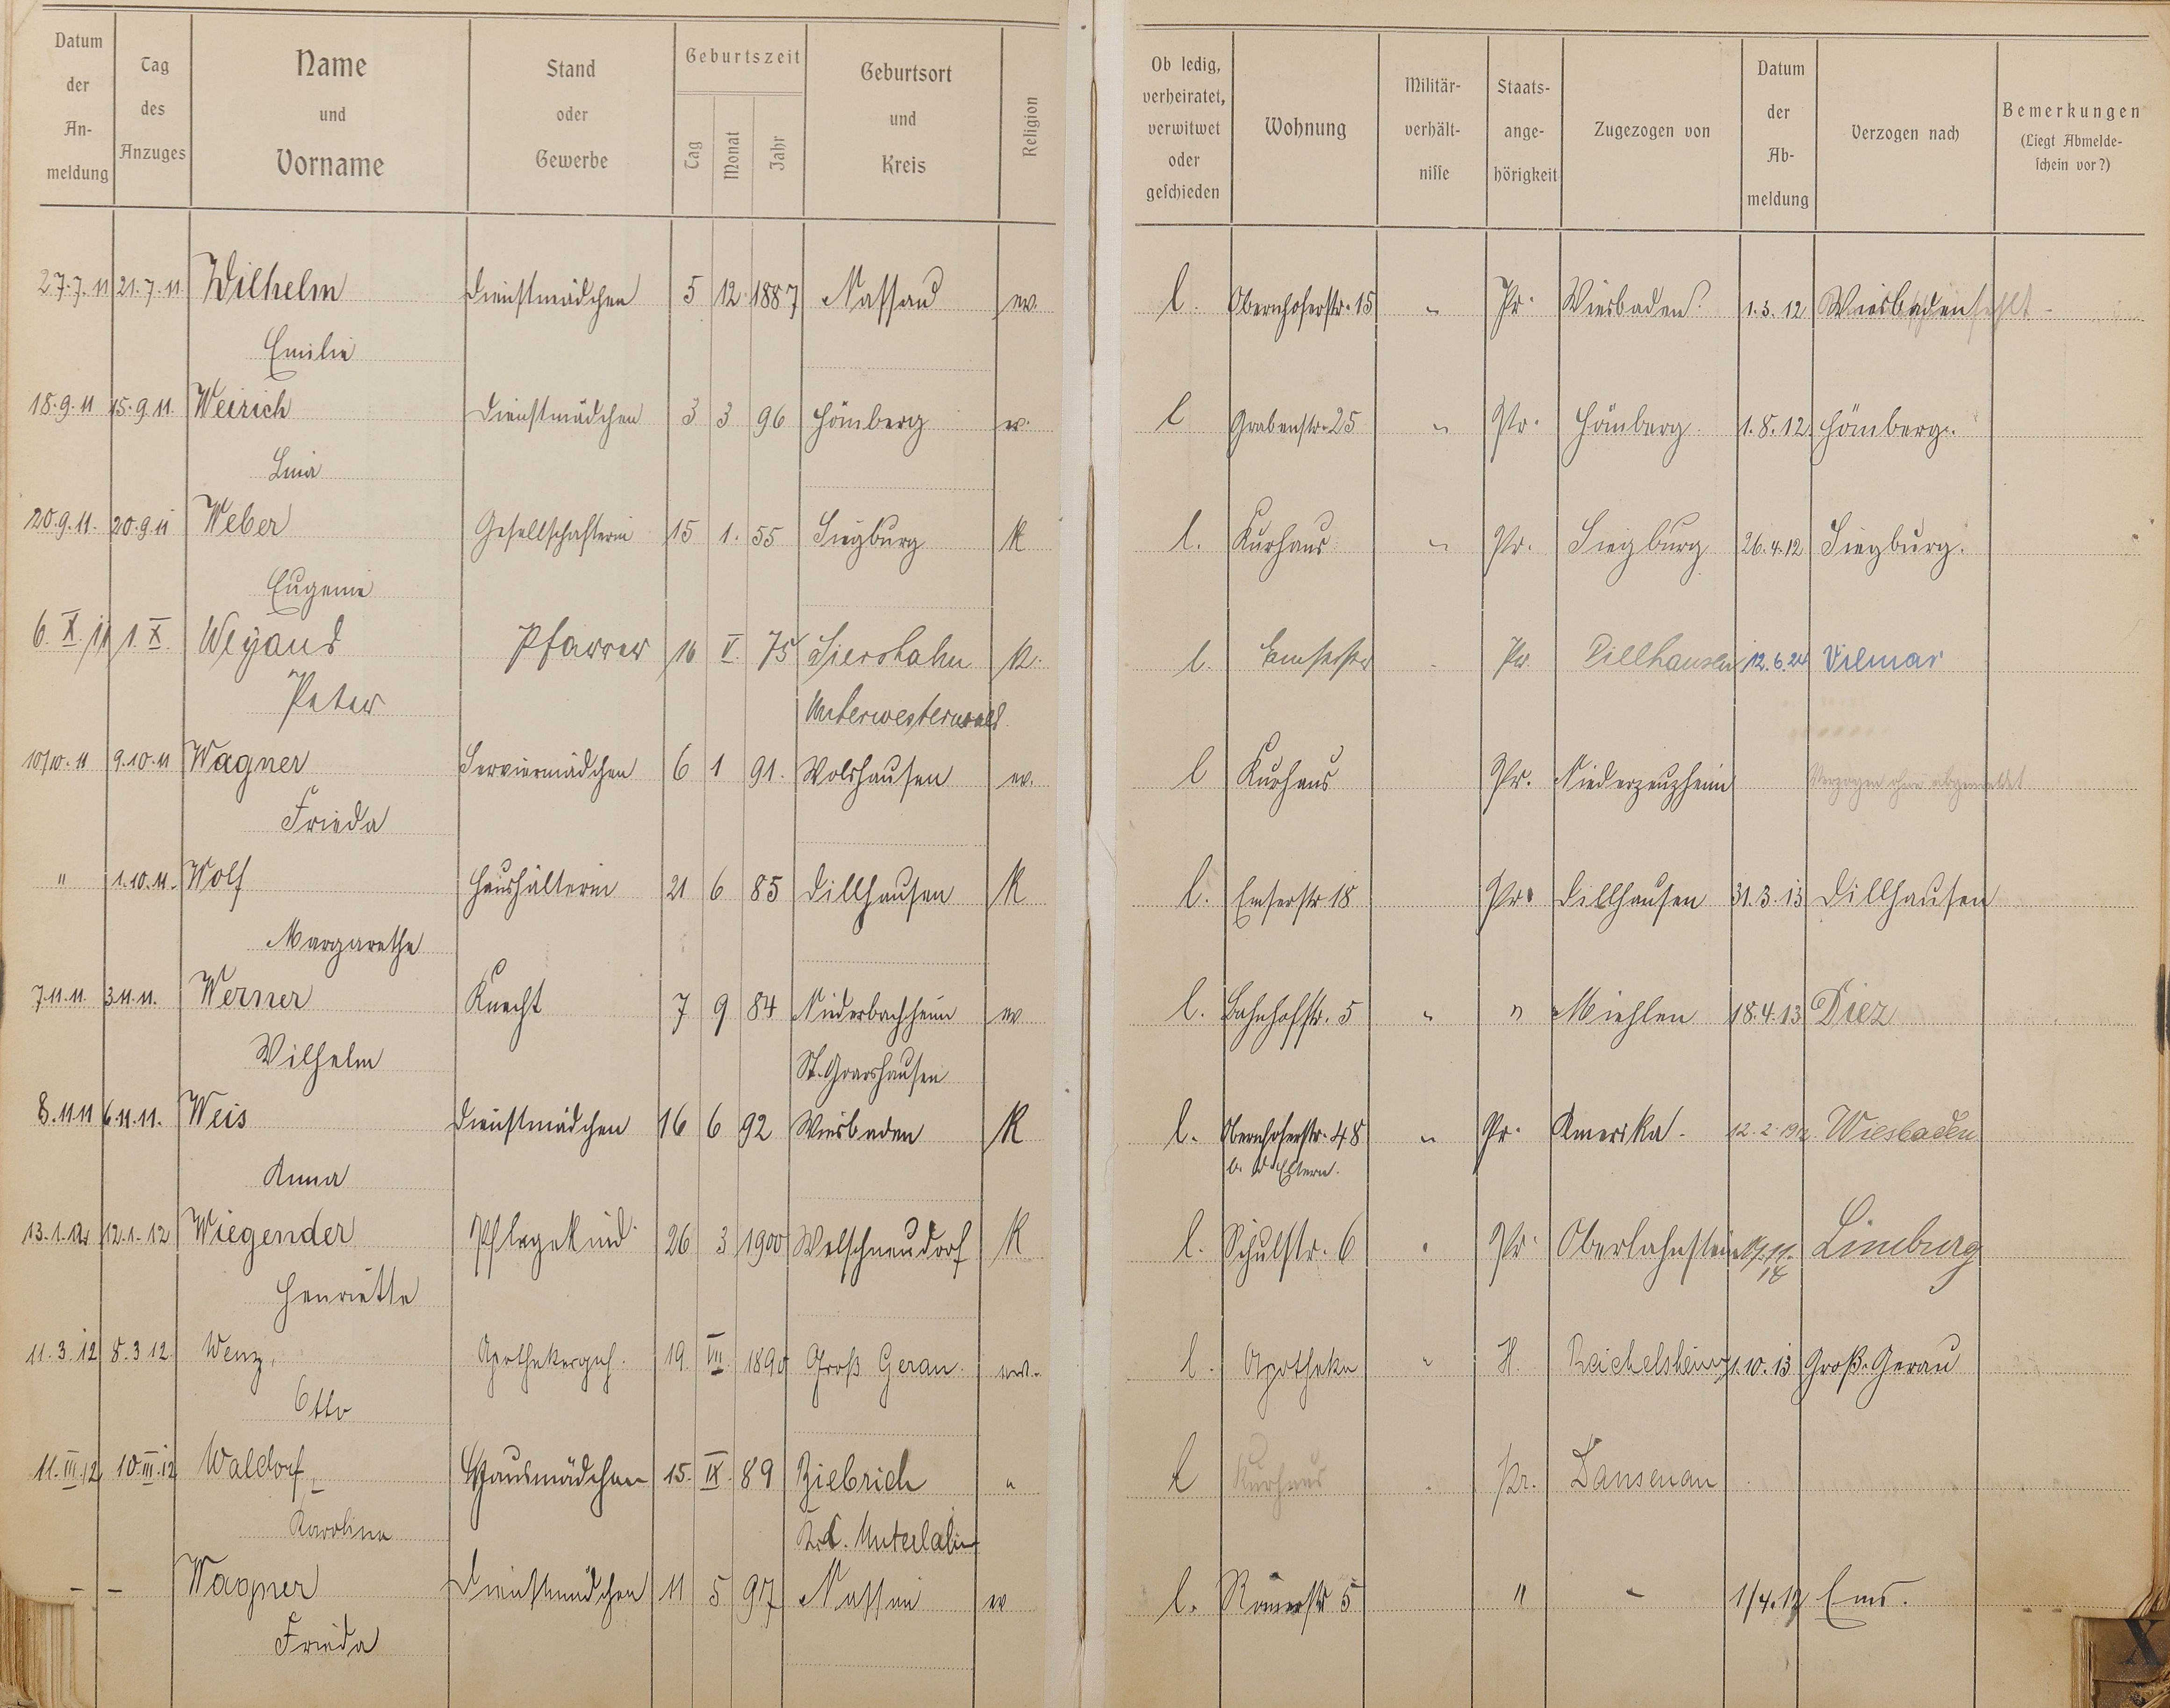 Datum der An- meldung | Tag des Anzuges | Name und Vorname | Stand oder Gewerbe | Geburtszeit Tag Monat Jahr | Geburtsort und Kreis | Religion | Ob ledig, verheiratet, verwitwet oder geschieden | Wohnung | Militär- verhält- nisse | Staats- ange- hörigkeit | Zugezogen von | Datum der Ab- meldung | Verzogen nach | Bemerkungen (Liegt Abmelde- schein vor?)
27.7.11 21.7.11 Wilhelm Dienstmädchen 5 12 1887 Nassau ev. l. Obernhoferstr. 15 " Pr. Wiesbaden 1.3.12 Wiesbaden fehlt
Emilie
18.9.11 15.9.11. Weirich Dienstmädchen 3 3 96 Hömberg ev. l Grabenstr. 25 " Pr. Hömberg 1.8.12 Hömberg.
Lina
20.9.11. 20.9.11 Weber Gesellschafterin 15 1. 55 Siegburg K l. Kurhaus " Pr. Siegburg 26.4.12 Siegburg.
Eugenie
6. X. 11 1. X. Weyand Pfarrer 16 V. 75 Siershahn K. l. Emserstr Pr. Dillhausen 12.6.24 Vilmar
Peter Unterwesterwald
10/10.11 9.10.11 Wagner Serviermädchen 6 1 91. Wolshausen ev. l Kurhaus Pr. Niederzeuzheim Verzogen ohne abgemeldet
Frieda
" 1.10.11. Wolf Haushälterin 21 6 85 Dillhausen K l. Emserstr 18 Pr. Dillhausen 31.3.13 Dillhausen
Margarethe
7.11.11. 3.11.11. Werner Knecht 7 9 84 Niederbachheim ev l. Bahnhofstr. 5 " " Miehlen 18.4.13 Diez
Wilhelm St. Goarshausen
8.11.11 6.11.11. Weis Dienstmädchen 16 6 92 Wiesbaden K l. Obernhoferstr. 48 " Pr. Amerika. 12.2.1912 Wiesbaden
Anna b. d. Eltern.
13.1.12 12.1.12 Wiegender Pflegekind 26 3 1900 Welschneudorf K l. Schulstr. 6 " Pr. Oberlahnstein Limburg
Henriette
11.3.12 8.3.12 Wenz, Apothekergeh. 19. VII 1890 Groß Gerau. ev. l. Apotheke " H. Reichelsheim 1.10.13 Groß-Gerau
Otto
11.III.12 10.III.12 Waldorf Hausmädchen 15. IX. 89 Biebrich " l Kurhaus Pr. Dausenau
Karoline Krs. Unterlahn
- - Wagner Dienstmädchen 11 5 97 Nassau ev l. Römerstr 5 " - 1/4.12 Ems.
Frieda